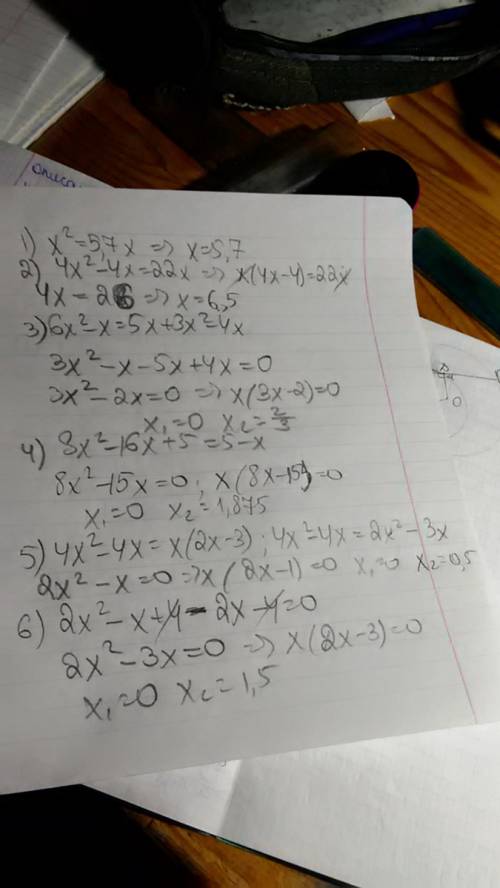 описа
1) x²=5,7x => x=5,7
2) 4x²-4x=22x => x(4x-4)=22x
4x=26 => x=6,5
3) 6x²-x=5x+3x²-4x
3x²-x-5x+4x=0
3x²-2x=0 => x(3x-2)=0
x₁=0 x₂=2/3
4) 8x²-16x+5=5-x
8x²-15x=0; x(8x-15)=0
x₁=0 x₂=1,875
5) 4x²-4x=x(2x-3); 4x²-4x=2x²-3x
2x²-x=0 => x(2x-1)=0 x₁=0 x₂=0,5
6) 2x²-x+4-2x-4=0
2x²-3x=0 => x(2x-3)=0
x₁=0 x₂=1,5
O